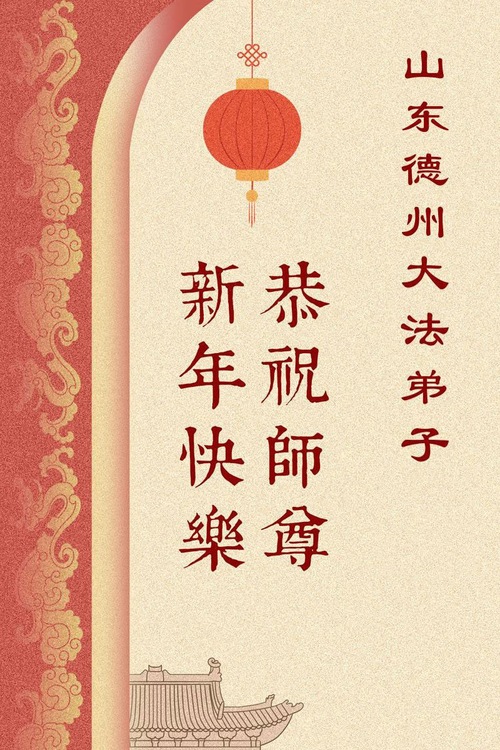 山东德州大法弟子
恭祝師尊
新年快樂